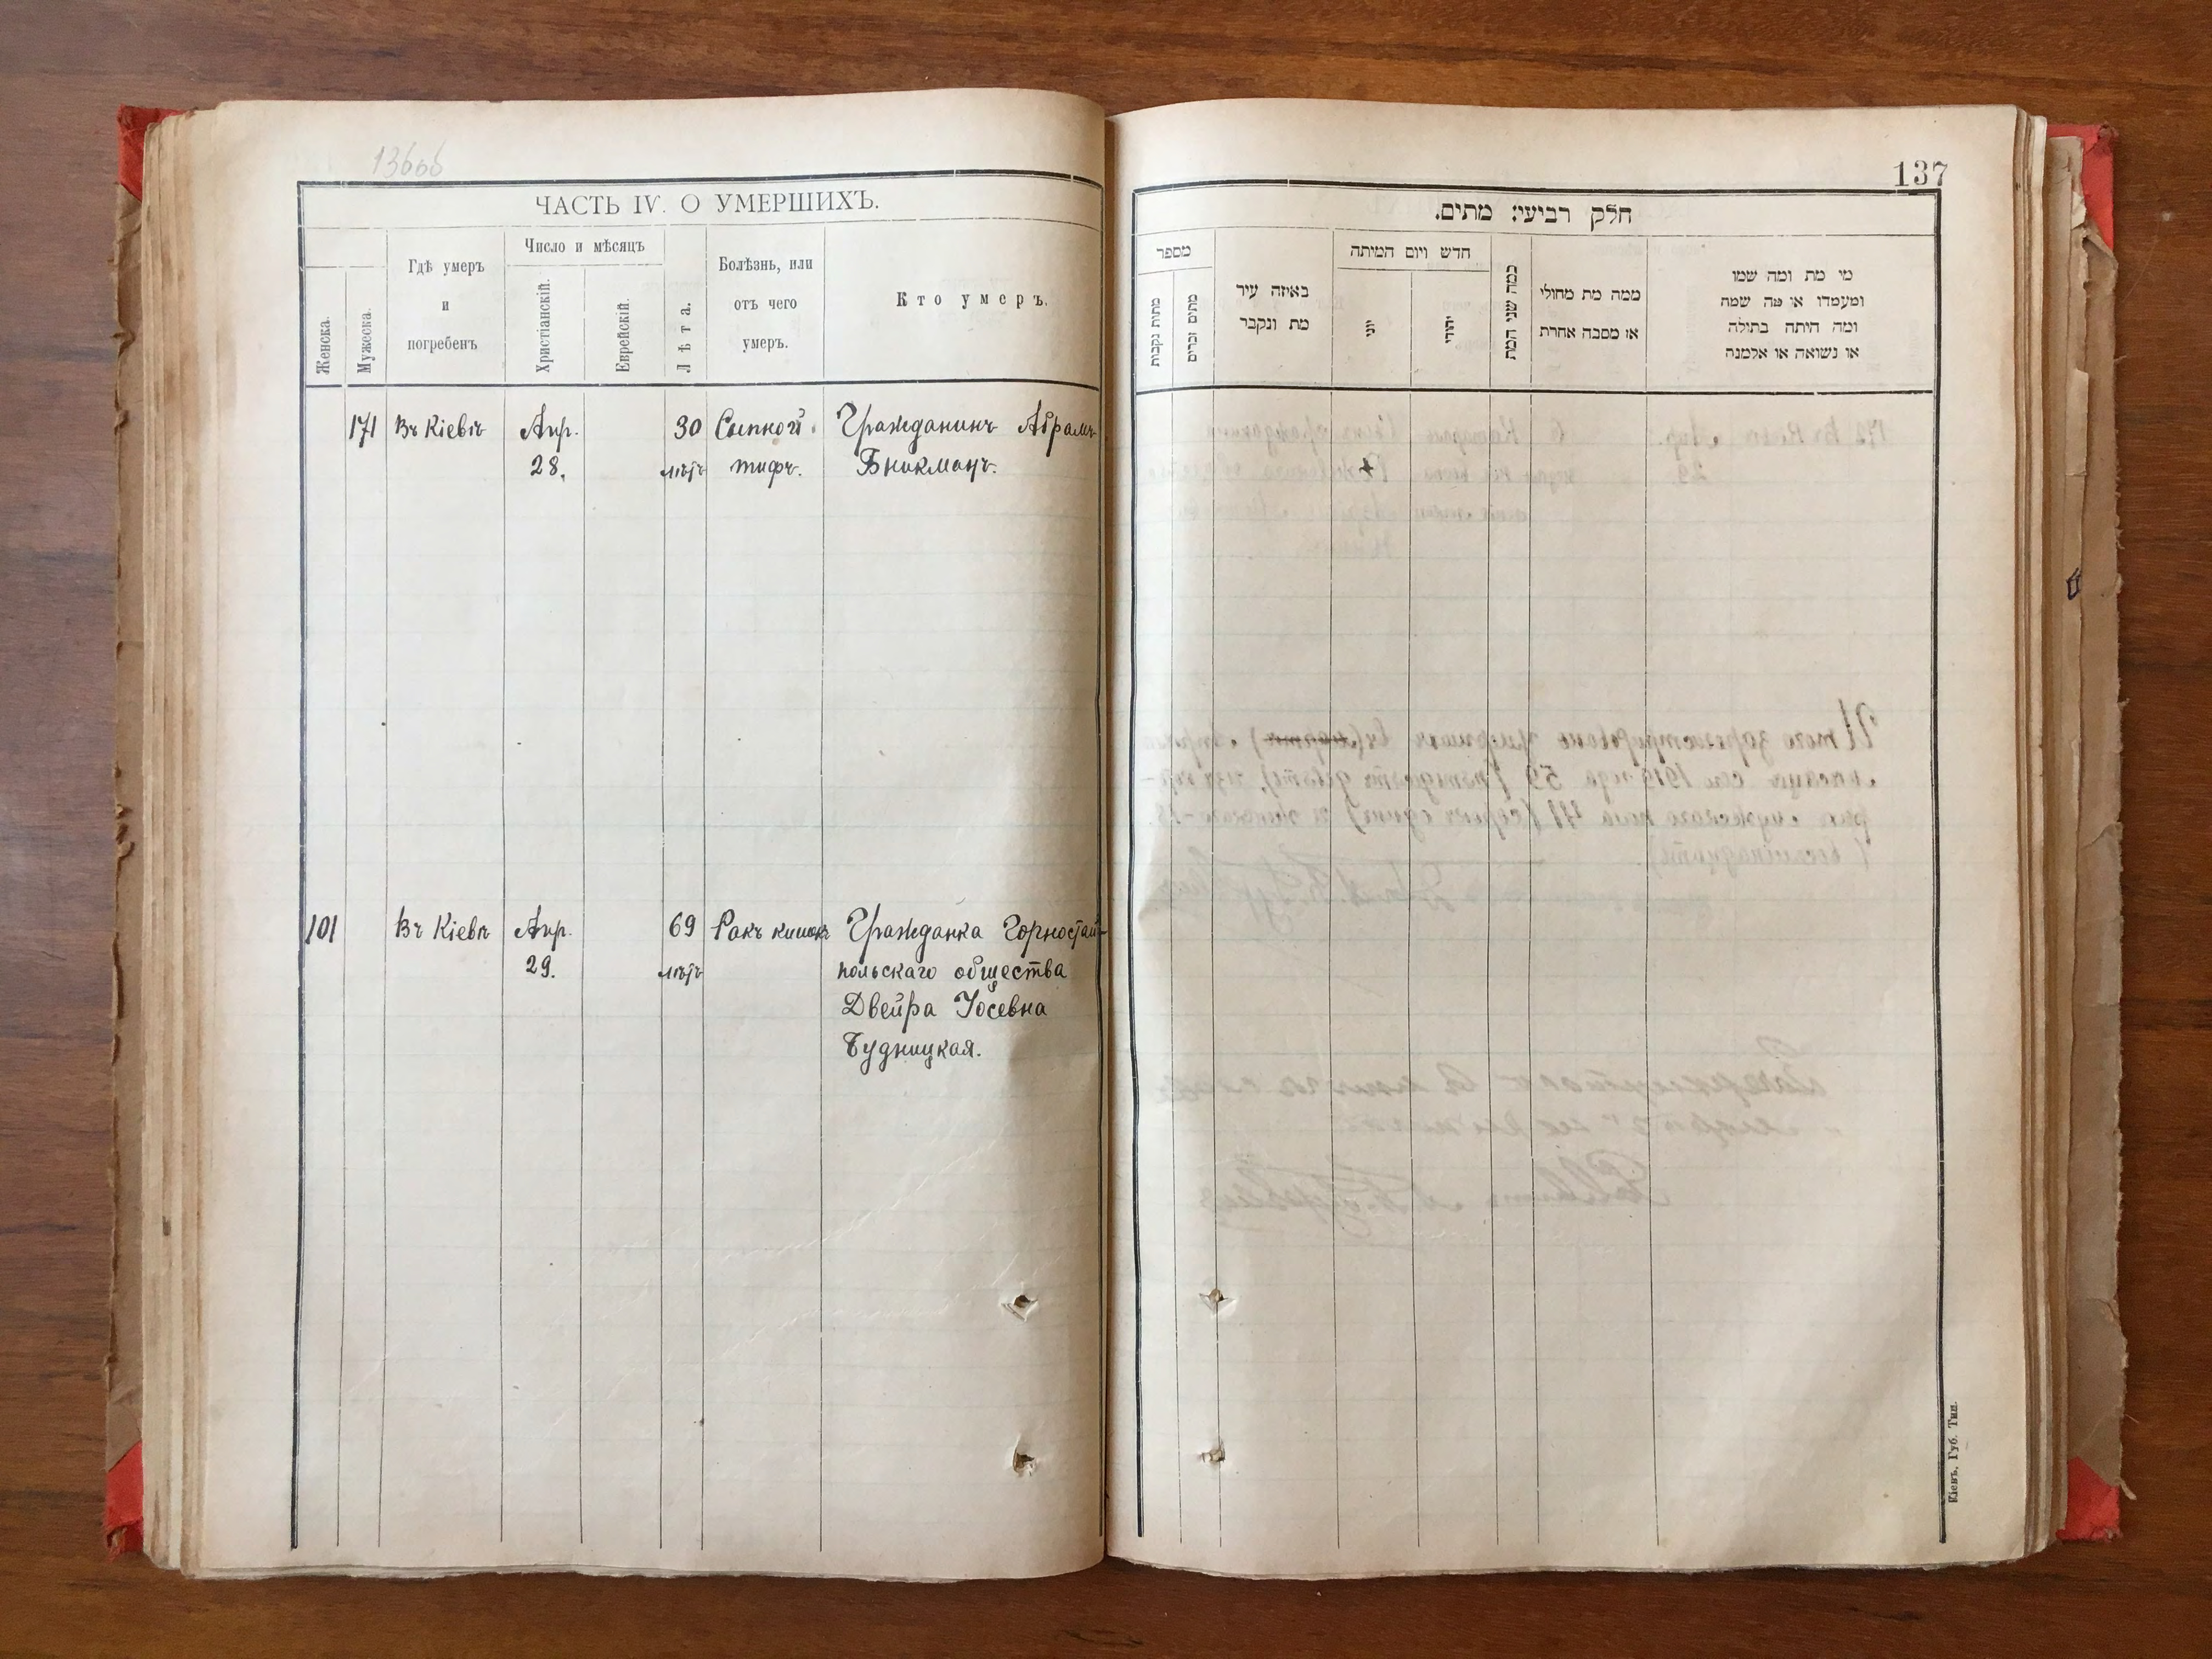 136об
ЧАСТЬ IV. О УМЕРШИХЪ.
Женска.
Мужеска.
Гдѣ умеръ
и
погребенъ
Число и мѣсяцъ
Христіанскій.
Еврейскій.
Лѣта.
Болѣзнь, или
отъ чего
умеръ.
Кто умеръ.
171 Въ Кіевѣ Апр. 30 Сыпной Гражданинъ Абрамъ
28. лѣтъ тифъ.
101 Въ Кіевѣ Апр. 69 Ракъ кишекъ Гражданка Горностай-
29. лѣтъ польскаго общества
Двейра Іосевна
Будницкая.
137
חלק רביעי: מתים.
מספר
מתות נקבות
מתים זכרים
באיזה עיר
מת ונקבר
חדש ויום המיתה
יוני
יהודי
כמה שני המת
ממה מת מחולי
או מסבה אחרת
מי מת ומה שמו
ומעמדו או מה שמה
ומה היתה בתולה
או נשואה או אלמנה
Кіевъ, Губ. Тип.